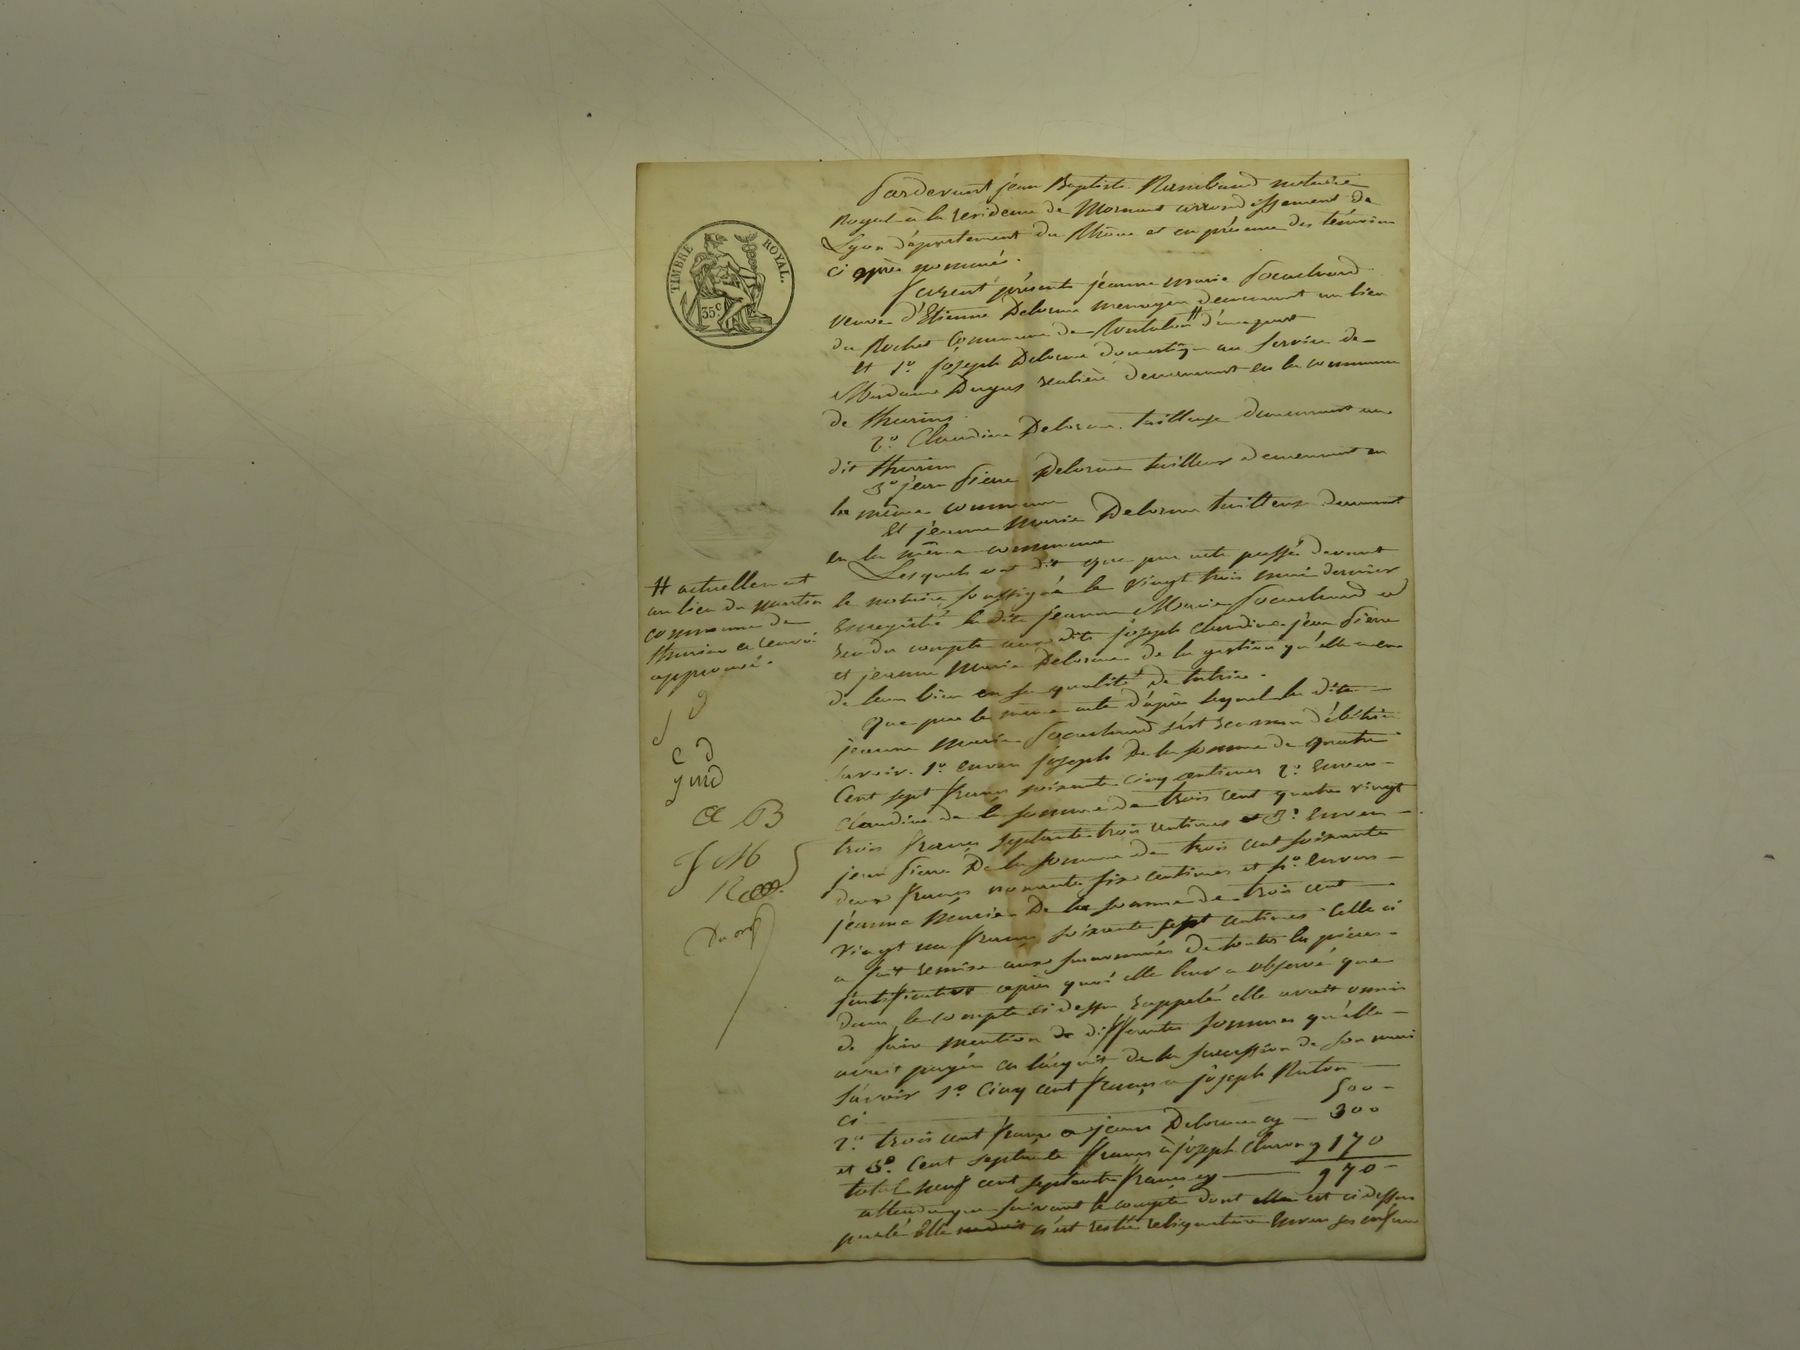 TIMBRE ROYAL.
35 c.
Pardevant jean Baptiste Rambaud notaire
Royal à la residence de Mornant arrondissement de
Lyon département du Rhône et en présence des témoins
ci après nommés.
furent présents jeanne marie
veuve d'Etienne Delorme demeurant au lieu
du Rochet commune de # d'une part
et 1º. joseph Delorme domestique au service de
Madame Dugas rentière demeurant en la commune
de thurins.
2º. Claudine Delorme tailleuse demeurant au
dit thurins
3º jean Pierre Delorme tailleur demeurant en
la même commune
Et jeanne Marie Delorme tailleuse demeurant
en la même commune
Lesquels ont dit que par acte passé devant
le notaire soussigné le vingt trois mai dernier
Enregistré la dite jeanne Marie a
rendu compte aux dits joseph claudine jean Pierre
et jeanne Marie Delorme de la gestion qu'elle a eue
de leur bien en sa qualité de tutrice.
Que par le même acte d'après lequel la dite
jeanne Marie s'est reconnu débitrice
savoir. 1º. envers joseph De la somme de quatre
Cent sept francs soixante cinq centimes 2º. Envers
Claudine de la somme de trois cent quatre vingt
trois francs septante trois centimes et 3º. Envers
jean Pierre De la somme de trois cent soixante
deux francs nonante six centimes et 4º. Envers
jeanne Marie De la somme de trois cent
vingt un francs soixante sept centimes Celle ci
a fait remise aux surnommés De toutes les pièces
justificatives après quoi elle leur a observé que
dans le compte ci dessus rappelé elle avait omis
de faire mention de différentes sommes qu'elle
avait payée en l'acquit de la succession de son mari
Savoir 1º. Cinq cent francs a joseph
ci 500
2º. trois cent francs a jean Delorme cy 300
et 3º. Cent septante francs à joseph cy 170
total neuf cent septante francs cy 970
attendu que suivant le compte dont elle est ci dessus
parlé Elle n'est restée reliquataire Envers ses enfans
# actuellement
au lieu du
commune de
thurins ce renvoi
approuvé.
J D
C D
J M D
C B
J M